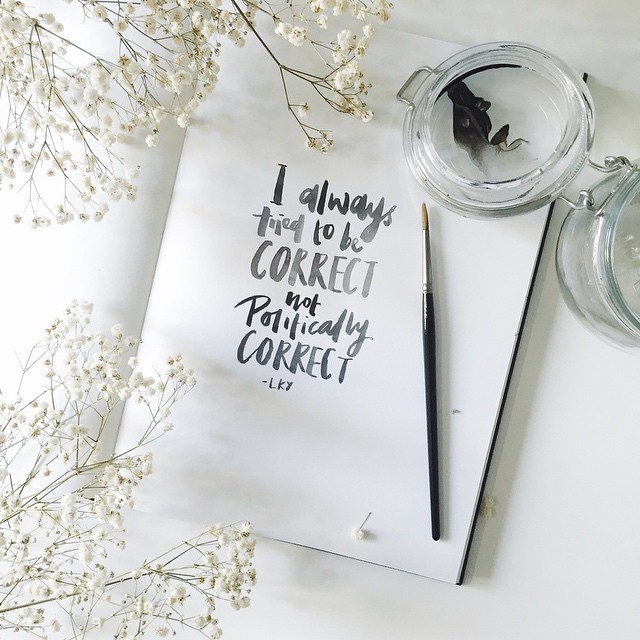 I always
tried to be
CORRECT
not
Politically
CORRECT
-LKY